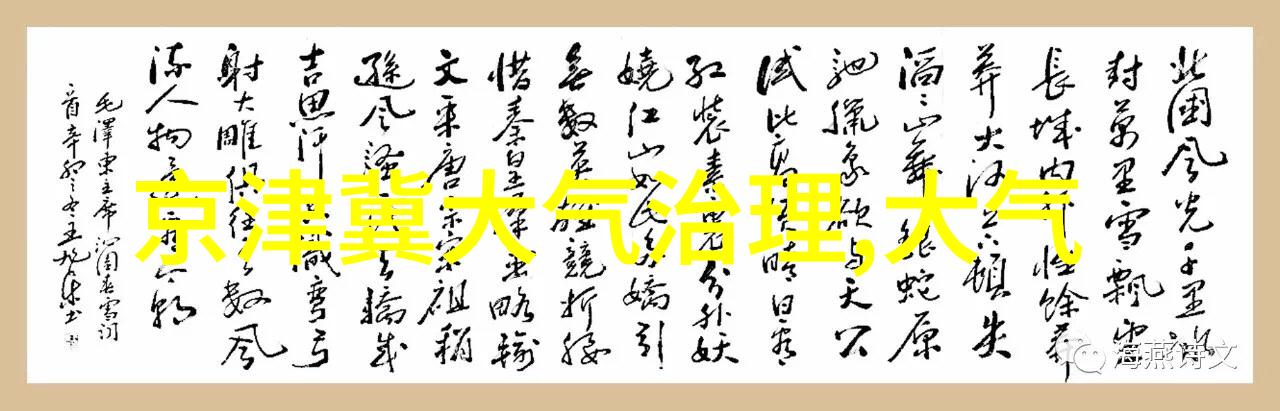 北國风光千里冰
封萬里雪飄望
長城内外惟馀莽
莽大河上下頓失
滔滔山舞銀蛇原
馳臘象欲与天公
试比高须晴日看
红装素裹分外妖
嬈江山如此多嬌引
無數英雄競折腰
惜秦皇漢武略输
文采唐宗宋祖稍
遜风骚一代天驕成
吉思汗只識弯弓
射大雕俱往矣數风
流人物還看今朝
毛澤東主席沁園春雪詞
首辛卯之冬王书
京津冀大气治理,大气
海燕诗文